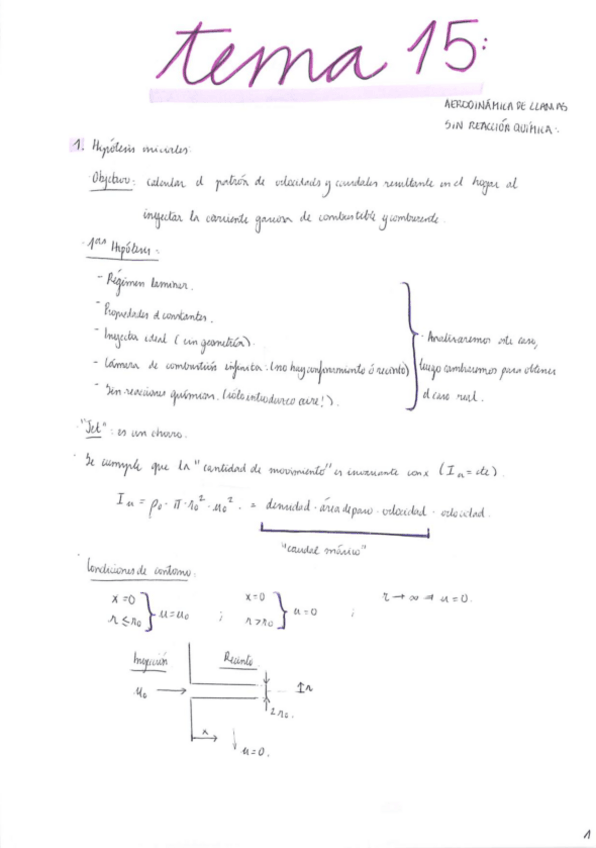 tema 15:
AERODINÁMICA DE LLAMAS
SIN REACCIÓN QUÍMICA:
1. Hipótesis iniciales:
· Objetivo: calcular el patrón de velocidades y caudales resultante en el hogar al
inyectar la corriente gaseosa de combustible y comburente.
· 1ªˢ Hipótesis:
- Régimen laminar.
- Propiedades constantes.
- Inyector ideal (sin geometría).
- Cámara de combustión infinita: (no hay confinamiento ó recinto)
- Sin reacciones químicas. (sólo introduzco aire!).
· Analizaremos este caso,
luego cambiaremos para obtener
el caso real.
· "Jet": es un chorro.
· Se cumple que la "cantidad de movimiento" es invariante con x (Iu = cte).
Iu = ρ₀ · π · r₀² · u₀² = densidad · área de paso · velocidad · velocidad.
"caudal másico"
· Condiciones de contorno:
x=0 r≤r₀ } u=u₀ ; x=0 r>r₀ } u=0 ; r → ∞ ⇒ u=0.
Inyección Recinto
u₀ → ↑r
2r₀.
x
u=0.
1